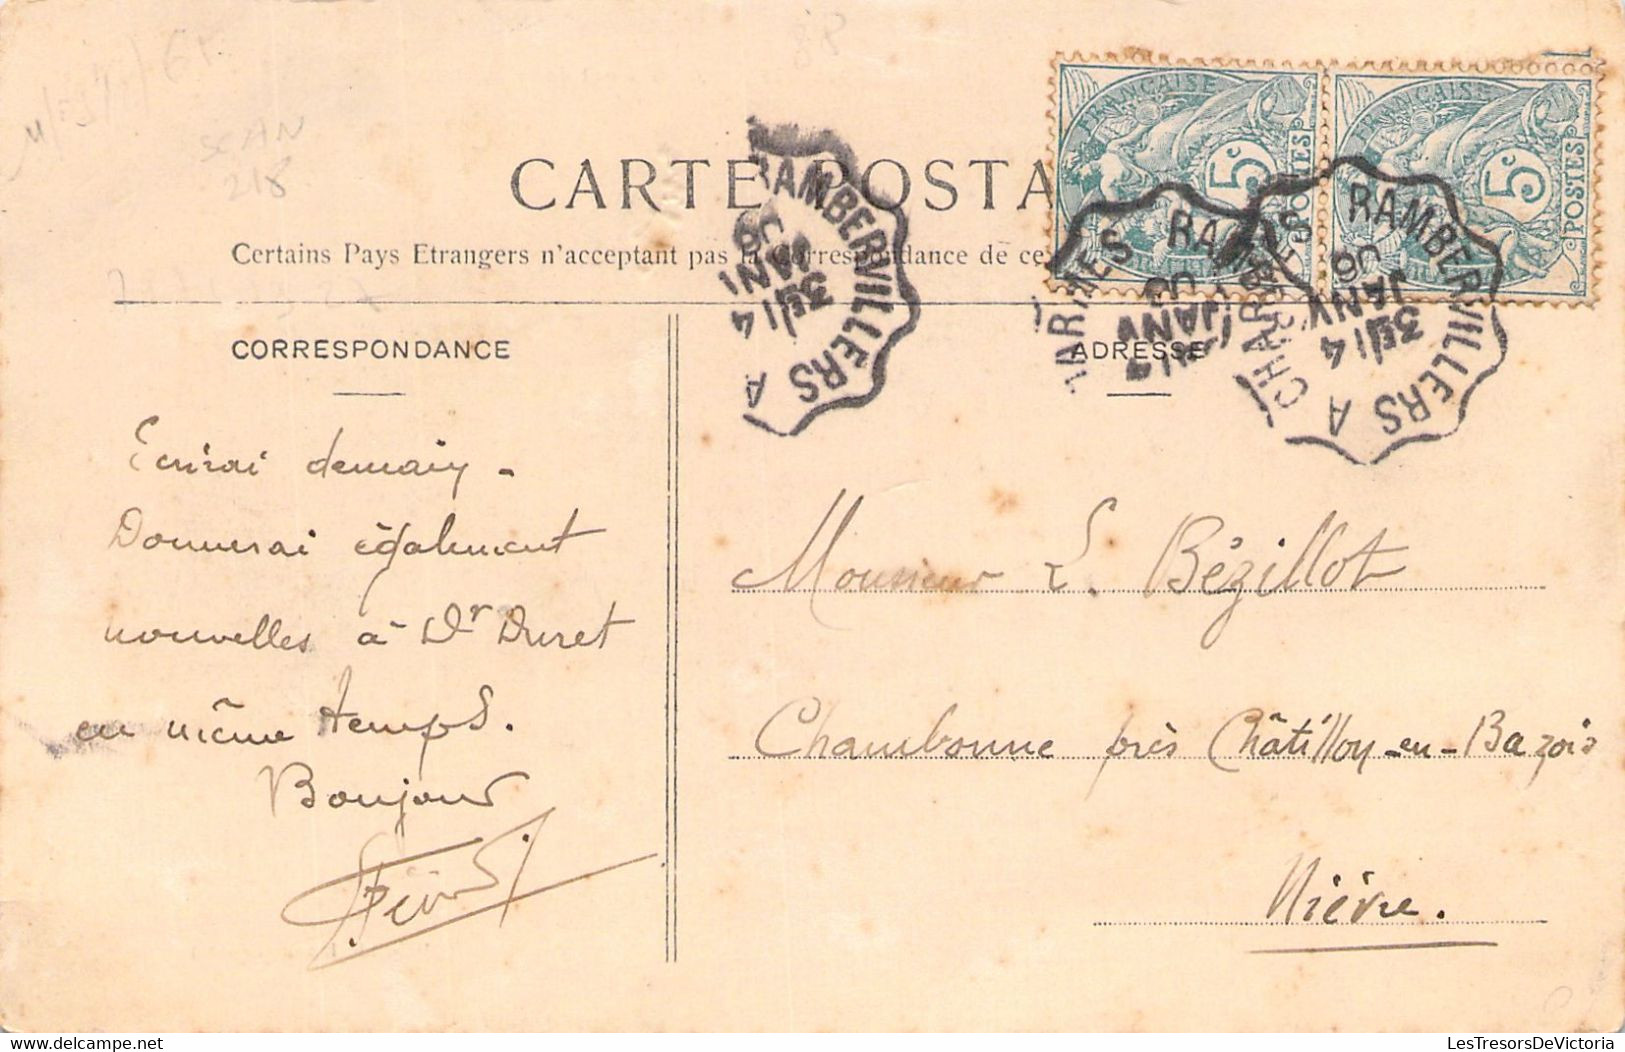 SCAN
218
CARTE POSTA
Certains Pays Etrangers n'acceptant pas la Correspondance de ce
FRANÇAISE
5c
POSTES
FRANÇAISE
5c
POSTES
RAMBERVILLERS A
3E/14
JANV
06
RAMBERVILLERS A CHARMES
3E/14
JANV
06
CORRESPONDANCE
ADRESSE
Ecrirai demain -
Donnerai également
nouvelles à Dr Duret
en même temps.
Bonjour
Monsieur L. Bézillot
Chambonne près Châtillon-en-Bazois
Nièvre.
delcampe.net
LesTresorsDeVictoria